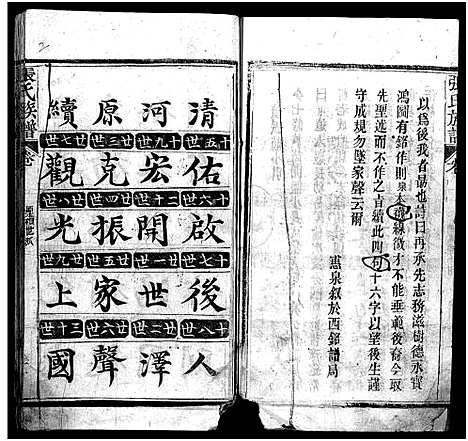 張氏族譜
以爲後我者勗也詩曰再承先志務滋樹德永寶
鴻圖有銘作則泉本
緣徵才不能垂範後裔今取
先聖述而不作之旨續此四句十六字以望後生謹
守成規勿墜家聲云爾
惠泉叙於西銘譜局
清河原續
世五十 世九十 世三廿 世七廿
佑宏克觀
世六十 世十二 世四廿 世八廿
啟開振光
世七十 世一廿 世五廿 世九廿
後世家上
世八十 世二廿 世六廿 世十三
人澤聲國
張氏族譜
卷